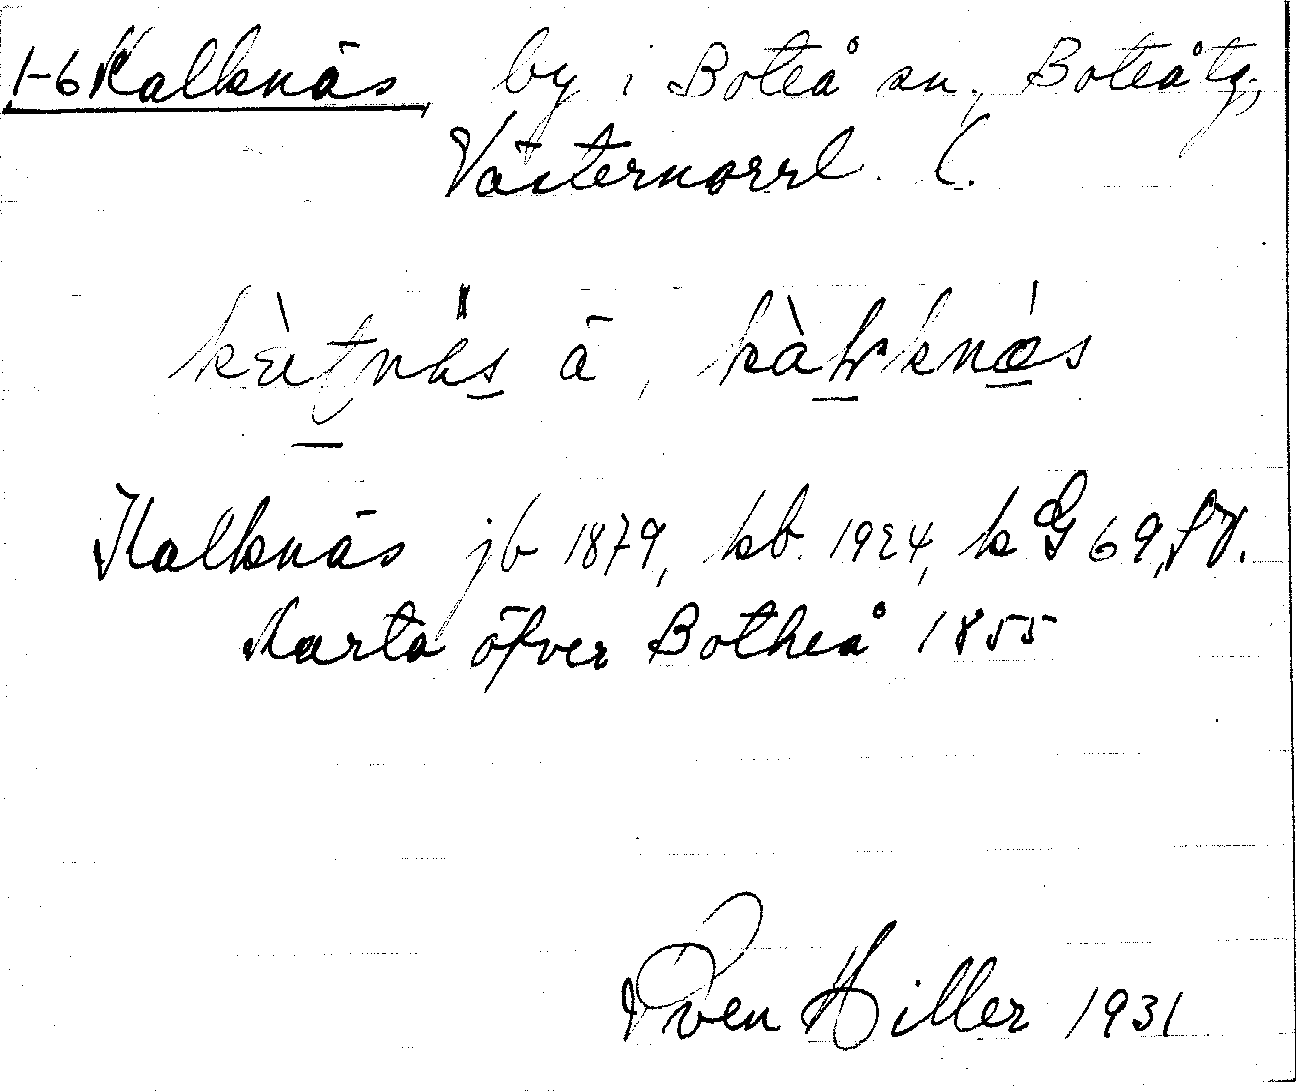 1-6 Kalknäs, by i Boteå sn, Boteå tg,
Västernorrl. l.
ā,
Kalknäs jb 1879, kb. 1924, k G 69,
Karta öfver Botheå 1855
Sven Hiller 1931